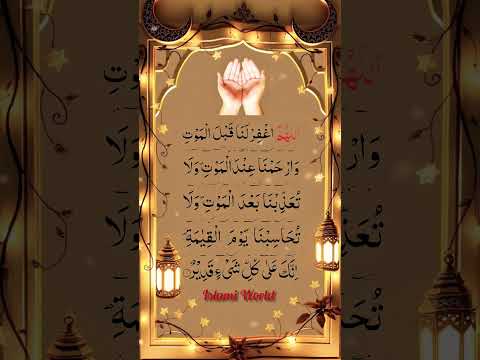 اَللّٰهُمَّ اغْفِرْ لَنَا قَبْلَ الْمَوْتِ
وَارْحَمْنَا عِنْدَ الْمَوْتِ وَلَا
تُعَذِّبْنَا بَعْدَ الْمَوْتِ وَلَا
تُحَاسِبْنَا يَوْمَ الْقِيٰمَةِ
اِنَّكَ عَلٰى كُلِّ شَىْءٍ قَدِيْرٌ
Islami World